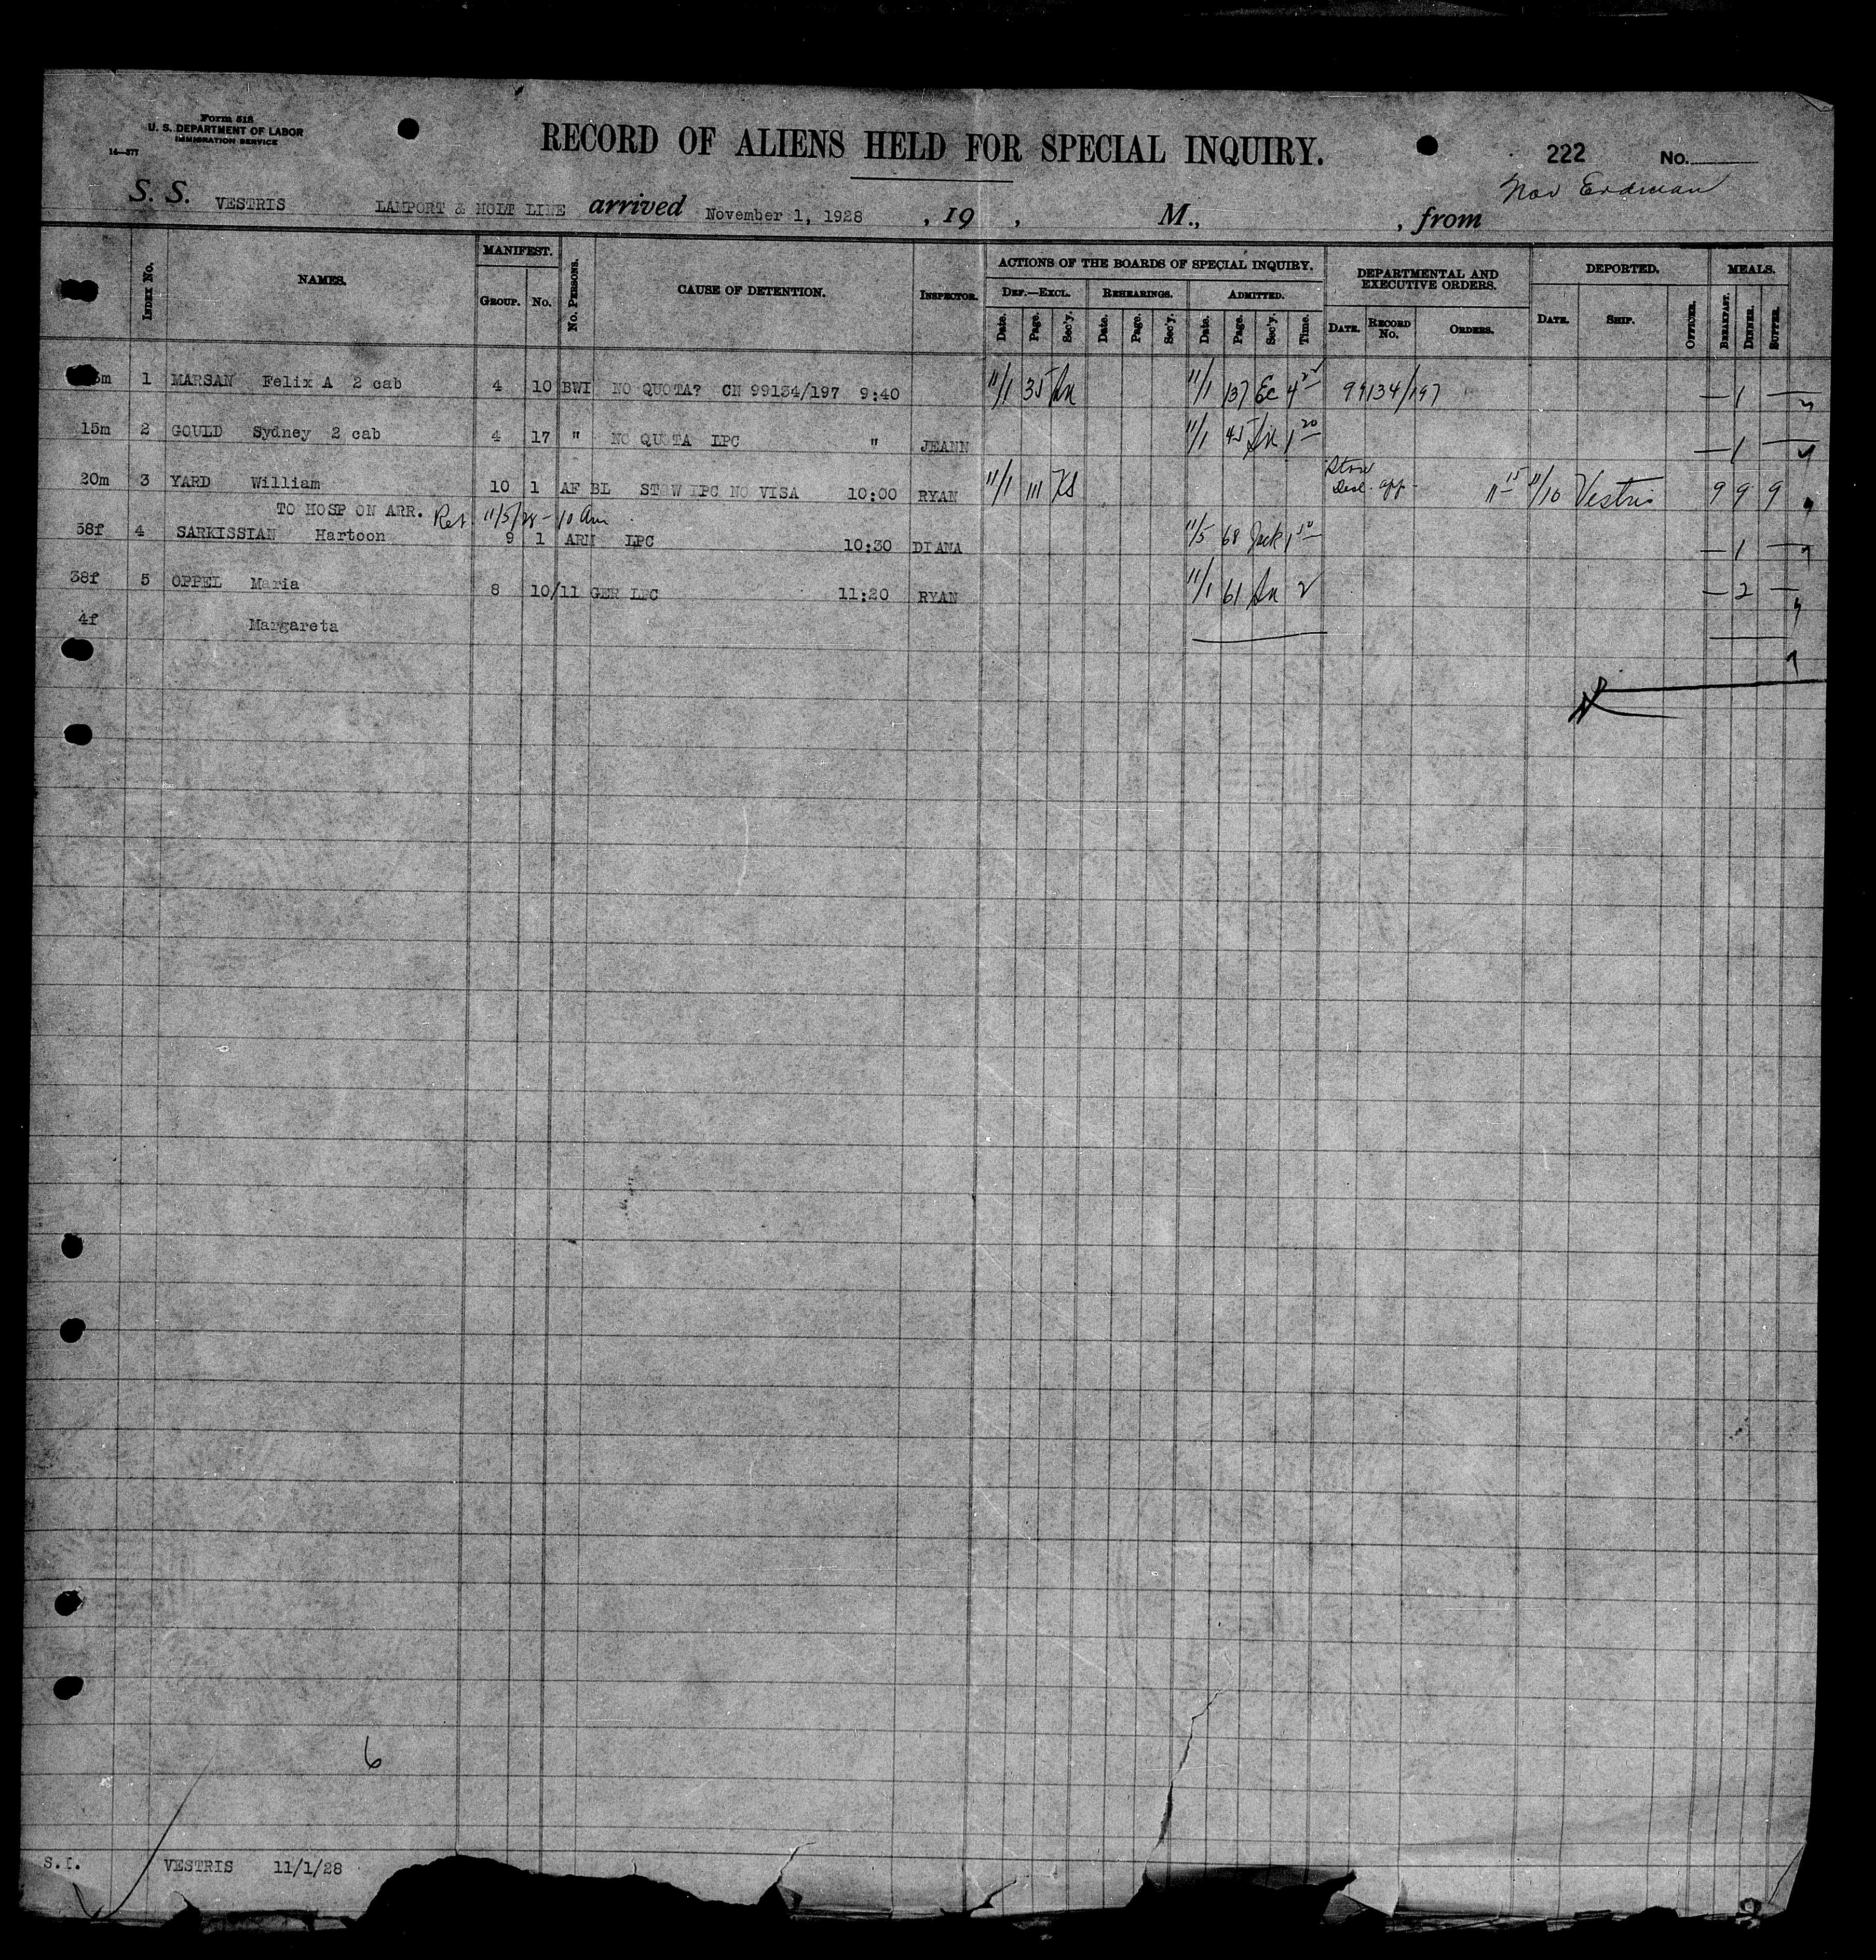 Form 518
U. S. DEPARTMENT OF LABOR
IMMIGRATION SERVICE
14—577
RECORD OF ALIENS HELD FOR SPECIAL INQUIRY.
222 No.
Nov Erdman
S. S. VESTRIS LAMPORT & HOLT LINE arrived November 1, 1928 , 19 , M., , from
INDEX No. NAMES. MANIFEST. GROUP. No. No. PERSONS. CAUSE OF DETENTION. INSPECTOR. ACTIONS OF THE BOARDS OF SPECIAL INQUIRY. DEF.—EXCL. Date. Page. Sec'y. REHEARINGS. Date. Page. Sec'y. ADMITTED. Date. Page. Sec'y. Time. DEPARTMENTAL AND EXECUTIVE ORDERS. DATE. RECORD No. ORDERS. DEPORTED. DATE. SHIP. OFFICER. MEALS. BREAKFAST. DINNER. SUPPER.
1 MARSAN Felix A 2 cab 4 10 BWI NO QUOTA? CN 99134/197 9:40 11/1 35 11/1 137 Ec 4 99134/197 — 1 —
15m 2 GOULD Sydney 2 cab 4 17 " NO QUOTA LPC " JEANN 11/1 45 1 20 — 1 —
20m 3 YARD William 10 1 AF BL STOW LPC NO VISA 10:00 RYAN 11/1 111 KS Stow Desl. app- 11 15 11/10 Vestris 9 9 9
TO HOSP ON ARR. Ret 11/5/28 - 10 Am
58f 4 SARKISSIAN Hartoon 9 1 ARM LPC 10:30 DIANA 11/5 68 Jack 1 — 1 —
38f 5 OPPEL Maria 8 10/11 GER LPC 11:20 RYAN 11/1 61 2 — 2 —
4f Margareta
6
S.I. VESTRIS 11/1/28